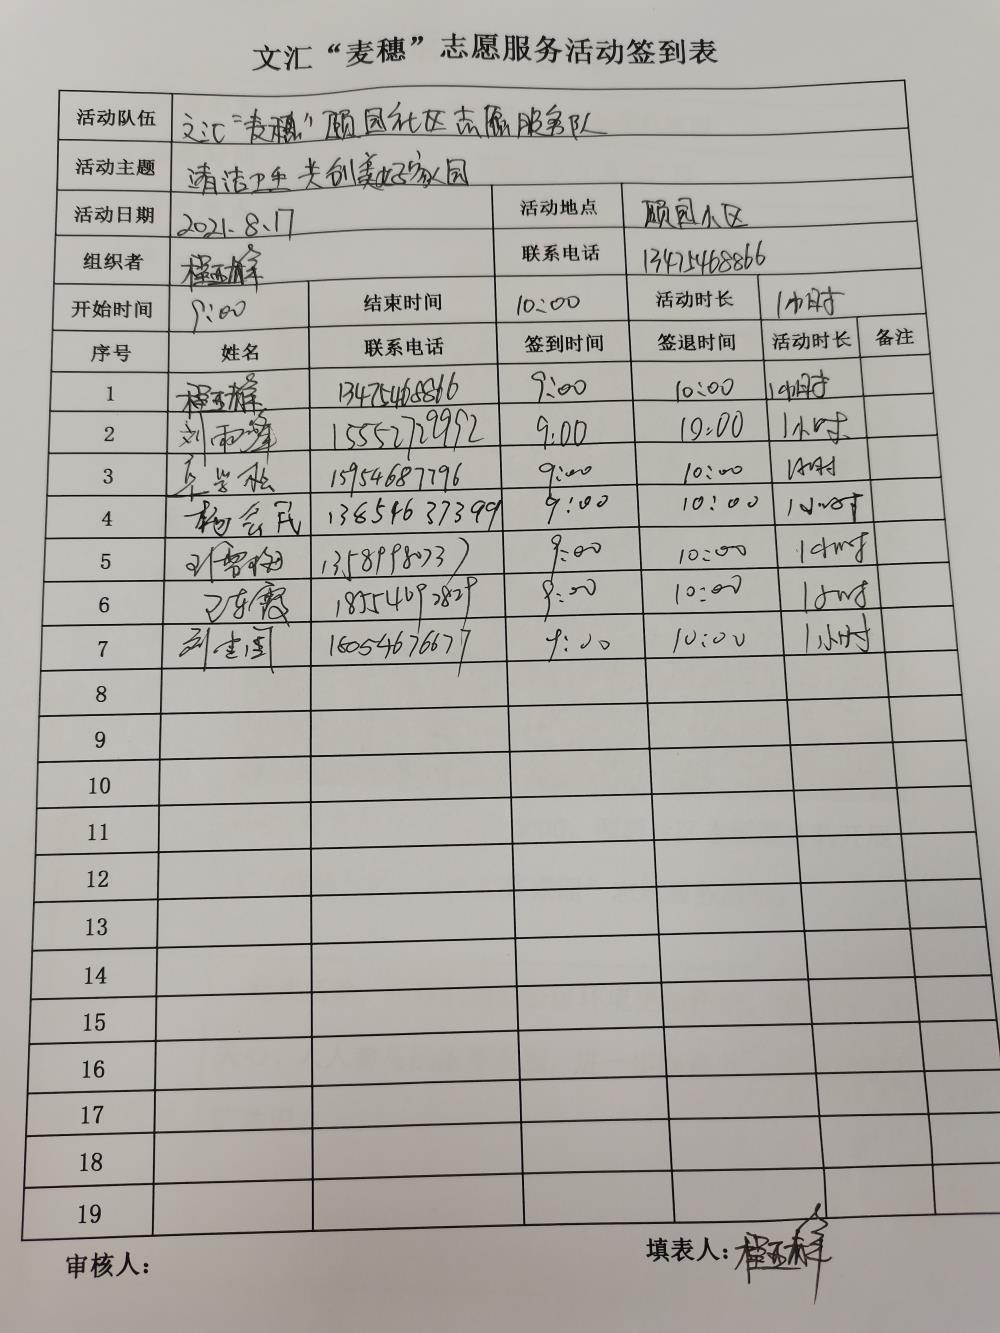 文汇“麦穗”志愿服务活动签到表
活动队伍 文汇“麦穗”颐园社区志愿服务队
活动主题 清洁卫生 共创美好家园
活动日期 2021.8.17 活动地点 颐园小区
组织者 联系电话 13475468866
开始时间 9:00 结束时间 10:00 活动时长 1小时
序号 姓名 联系电话 签到时间 签退时间 活动时长 备注
1 13475468866 9:00 10:00 1小时
2 刘雨 15552729992 9:00 10:00 1小时
3 15954687796 9:00 10:00 1小时
4 杨会民 13654637399 9:00 10:00 1小时
5 9:00 10:00 1小时
6 9:00 10:00 1小时
7 刘 18054676677 9:00 10:00 1小时
8
9
10
11
12
13
14
15
16
17
18
19
审核人： 填表人：